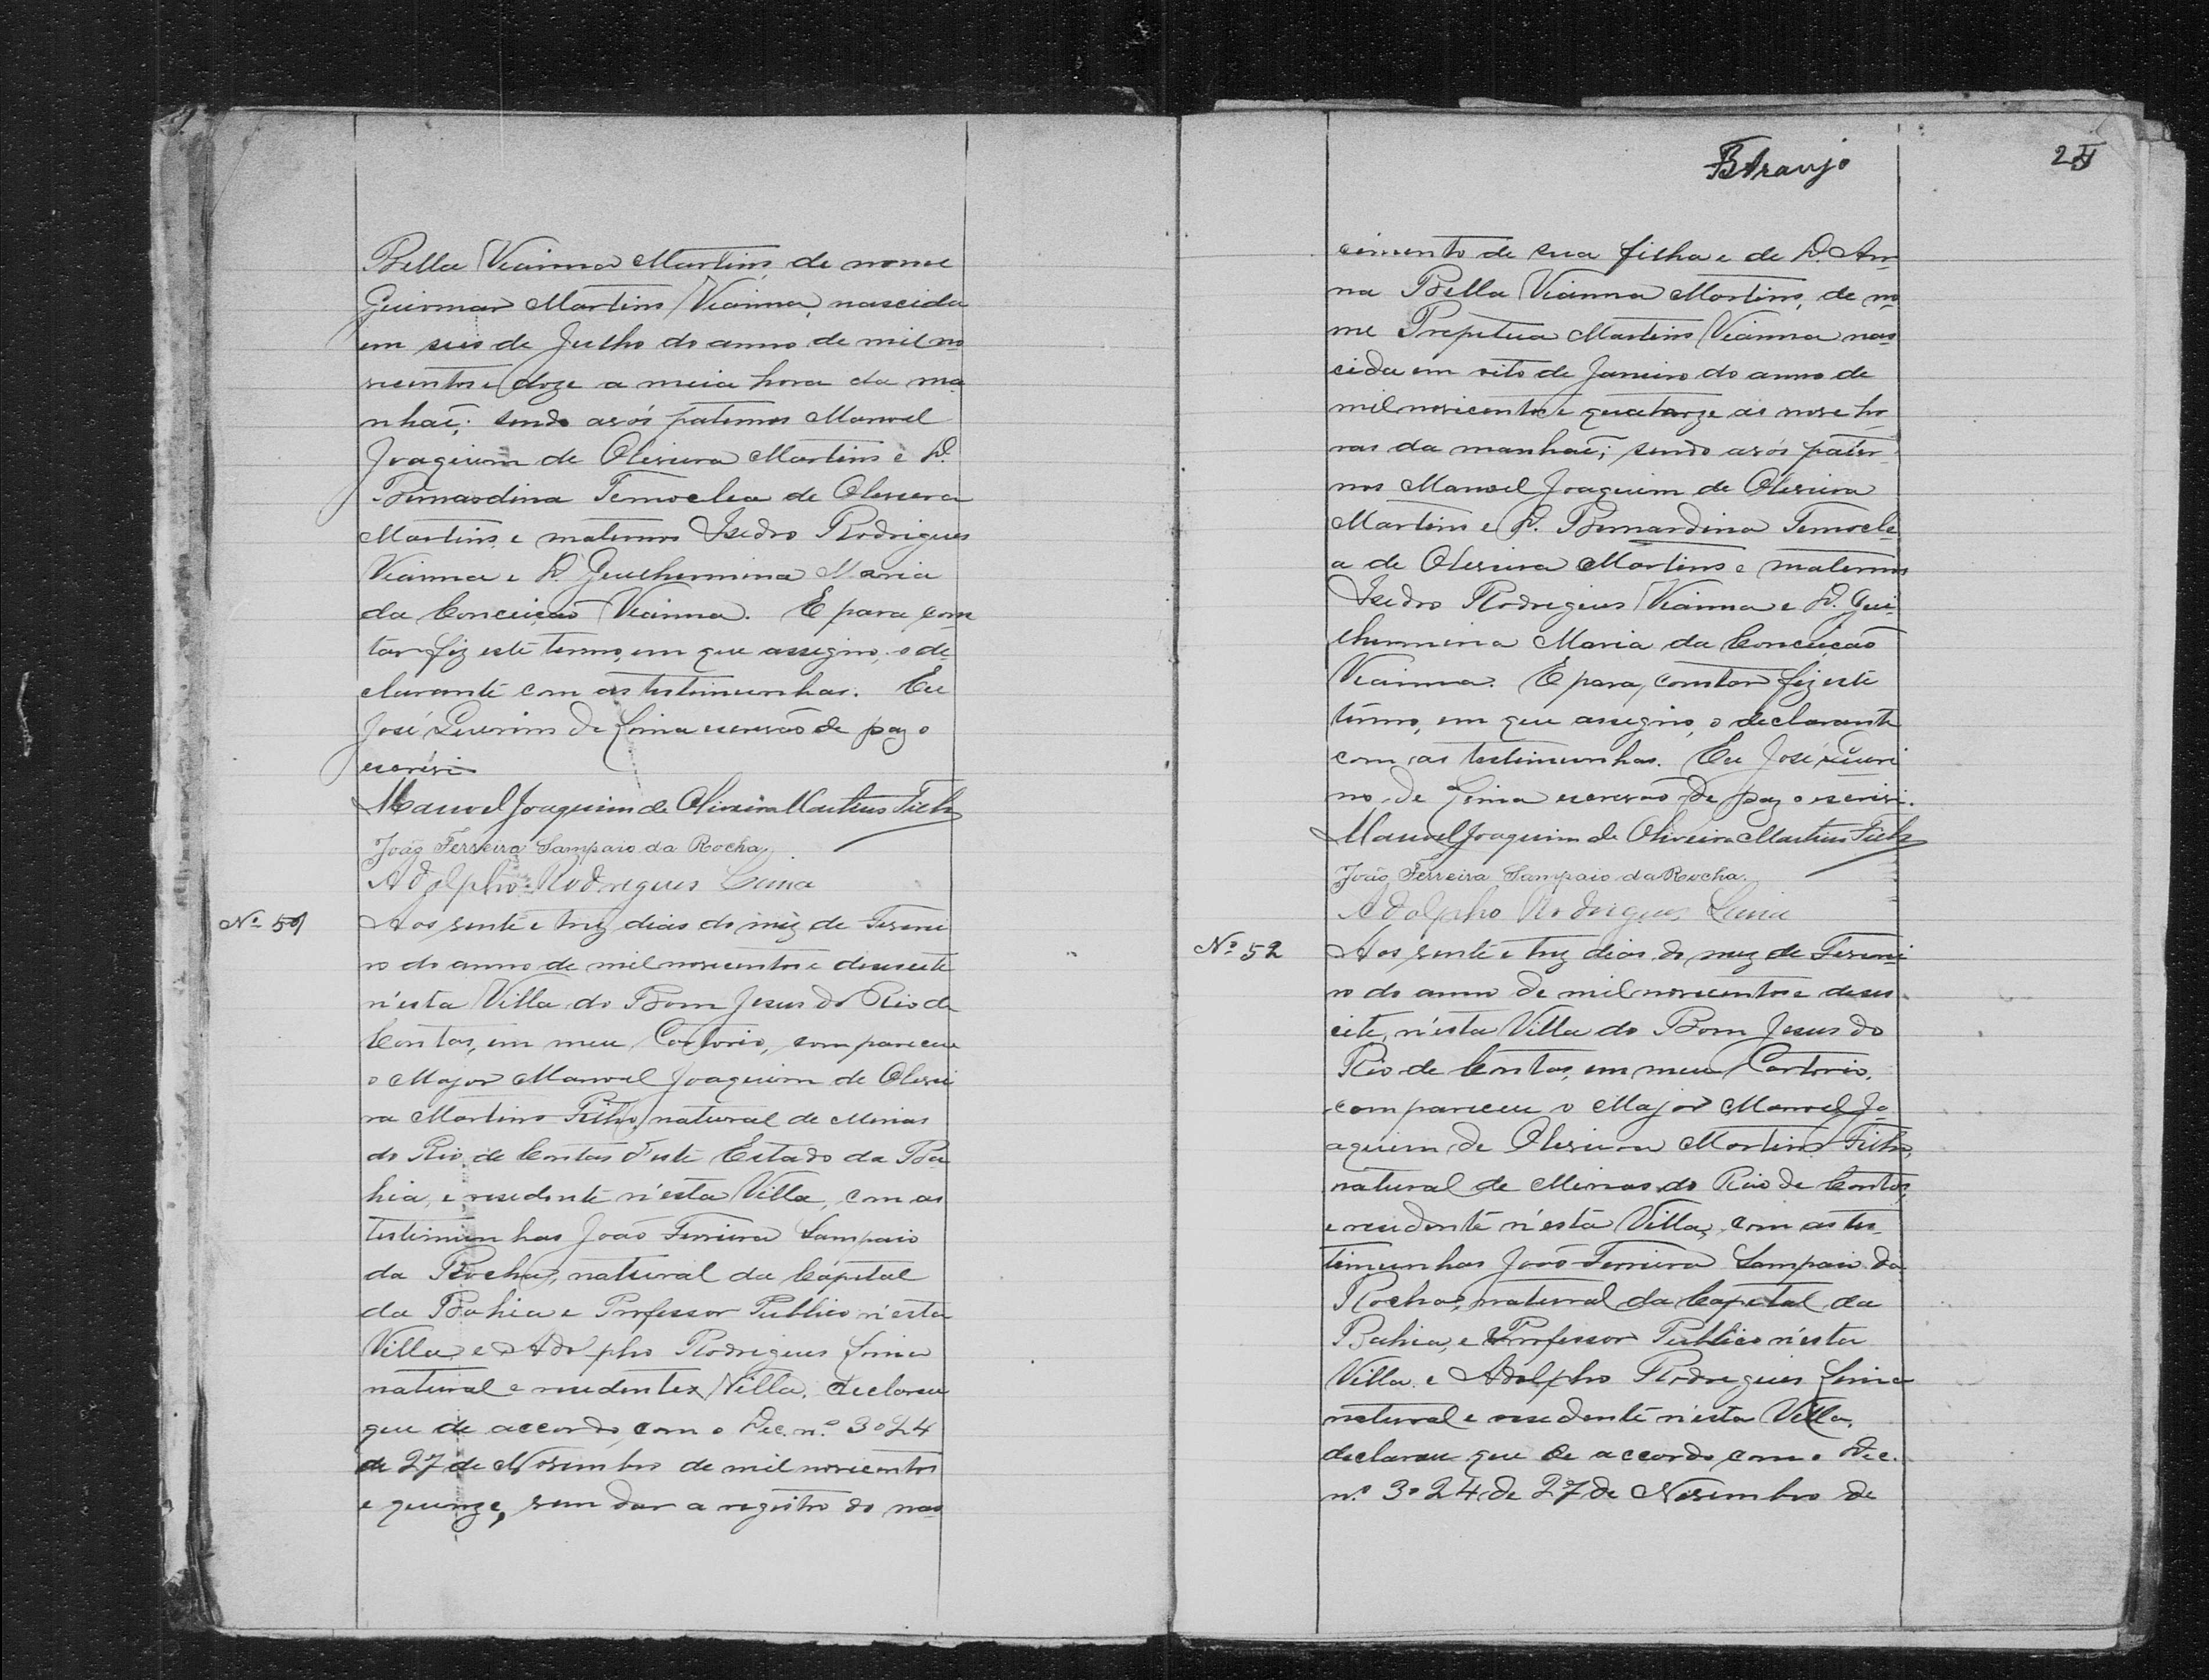 Bella Vianna Martins, de nome
Guiomar Martins Vianna, nascida
em seis de Julho do anno de mil no-
vecentos e doze a meia hora da ma-
nhaã; sendo avós paternos Manoel
Joaquim de Oliveira Martins e D.
Bernardina Temoclea de Oliveira
Martins, e maternos Isidro Rodrigues
Vianna e D. Guilhermina Maria
da Conceição Vianna. E para cons
tar fiz este termo, em que assigno, o de-
clarante com as testimunhas. Eu
José Querino de Lima escrivão de paz o
escrivi
Manoel Joaquim de Oliveira Martins Filho
João Ferreira Sampaio da Rocha.
Adolpho Rodrigues Lima
Nº 51
Aos vinte e trez dias do mez de Feverei
ro do anno de mil novecentos e desesete
n'esta Villa do Bom Jesus do Rio de
Contas, em meu Cartorio, compareceu
o Major Manoel Joaquim de Olivei
ra Martins Filho, natural de Minas
do Rio de Contas d'este Estado da Ba
hia, e residente n'esta Villa, com as
testimunhas João Ferreira Sampaio
da Rocha, natural da Capital
da Bahia e Professor Publico n'esta
Villa e Adolpho Rodrigues Lima
natural e residente Villa, declarou
que de accordo com o Dec. n.º 3024
de 27 de Novembro de mil novecentos
e quinze, vem dar a registro do nas
BAraujo
25
cimento de sua filha e de D. An-
na Bella Vianna Martins, de no-
me Prepetua Martins Vianna nas-
cida em oito de Janeiro do anno de
mil novecentos e quatorze as nove ho-
ras da manhaã; sendo avós pater-
nos Manoel Joaquim de Oliveira
Martins e D. Bernardina Temocle-
a de Oliveira Martins e maternos
Isidro Rodrigues Vianna e D. Gui-
lhermina Maria da Conceição
Vianna. E para constar fiz este
termo, em que assigno, o declarante
com as testimunhas. Eu José Queri
no de Lima escrivão de paz o escrivi.
Manoel Joaquim de Oliveira Martins Filho
João Ferreira Sampaio da Rocha.
Adolpho Rodrigues Lima
Nº 52
Aos vinte e trez dias do mez de Feverei
ro do anno de mil novecentos e deses
cete, n'esta Villa do Bom Jesus do
Rio de Contas, em meu Cartorio,
compareceu o Major Manoel Jo
aquim de Oliveira Martins Filho,
natural de Minas do Rio de Contas,
e residente n'esta Villa, com as tes
timunhas João Ferreira Sampaio da
Rocha, natural da Capital da
Bahia, e Professor Publico n'esta
Villa e Adolpho Rodrigues Lima
natural e residente n'esta Villa,
declarou que de accordo com o Dec.
n.º 3024 de 27 de Novembro de